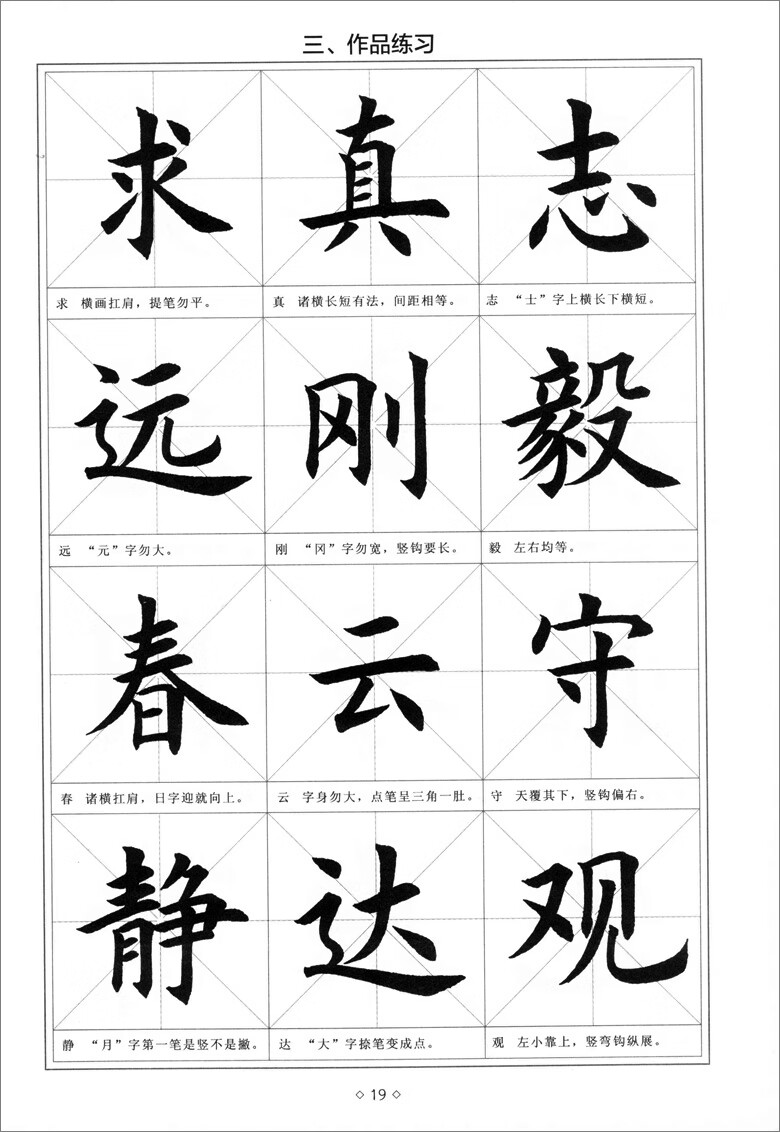 三、作品练习
求 真 志
求 横画扛肩，提笔勿平。
真 诸横长短有法，间距相等。
志 “士”字上横长下横短。
远 刚 毅
远 “元”字勿大。
刚 “冈”字勿宽，竖钩要长。
毅 左右均等。
春 云 守
春 诸横扛肩，日字迎就向上。
云 字身勿大，点笔呈三角一肚。
守 天覆其下，竖钩偏右。
静 达 观
静 “月”字第一笔是竖不是撇。
达 “大”字捺笔变成点。
观 左小靠上，竖弯钩纵展。
◇ 19 ◇